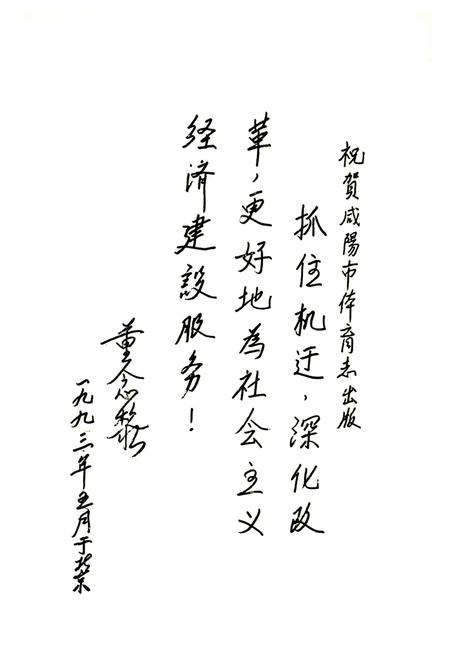 祝賀咸陽市体育志出版
抓住机迂，深化改
革，更好地為社会主义
経済建設服务！
董念黎
一九九三年五月于北京